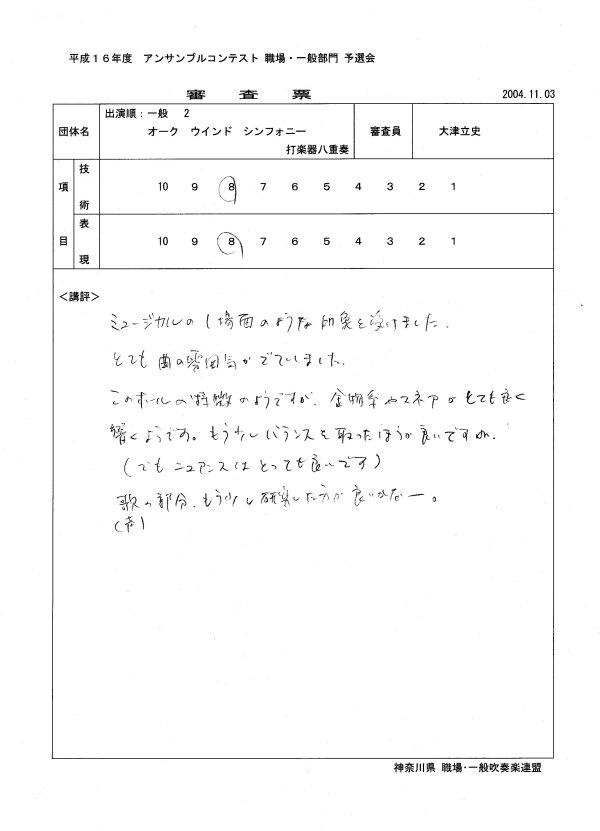 平成１６年度　アンサンブルコンテスト 職場・一般部門 予選会
審　査　票
2004.11.03
団体名
出演順：一般　2
オーク　ウインド　シンフォニー
打楽器八重奏
審査員
大津立史
項目
技術
10 9 8 7 6 5 4 3 2 1
表現
10 9 8 7 6 5 4 3 2 1
＜講評＞
ミュージカルの1場面のような印象を受けました.
とても曲の雰囲気がでていました.
このホールの特徴のようですが、金物系やスネアがとても良く
響くようです。もう少しバランスを取ったほうが良いですね.
(でもニュアンスはとっても良いです)
歌の部分、もう少し研究した方が良いかなー。
(声)
神奈川県 職場・一般吹奏楽連盟